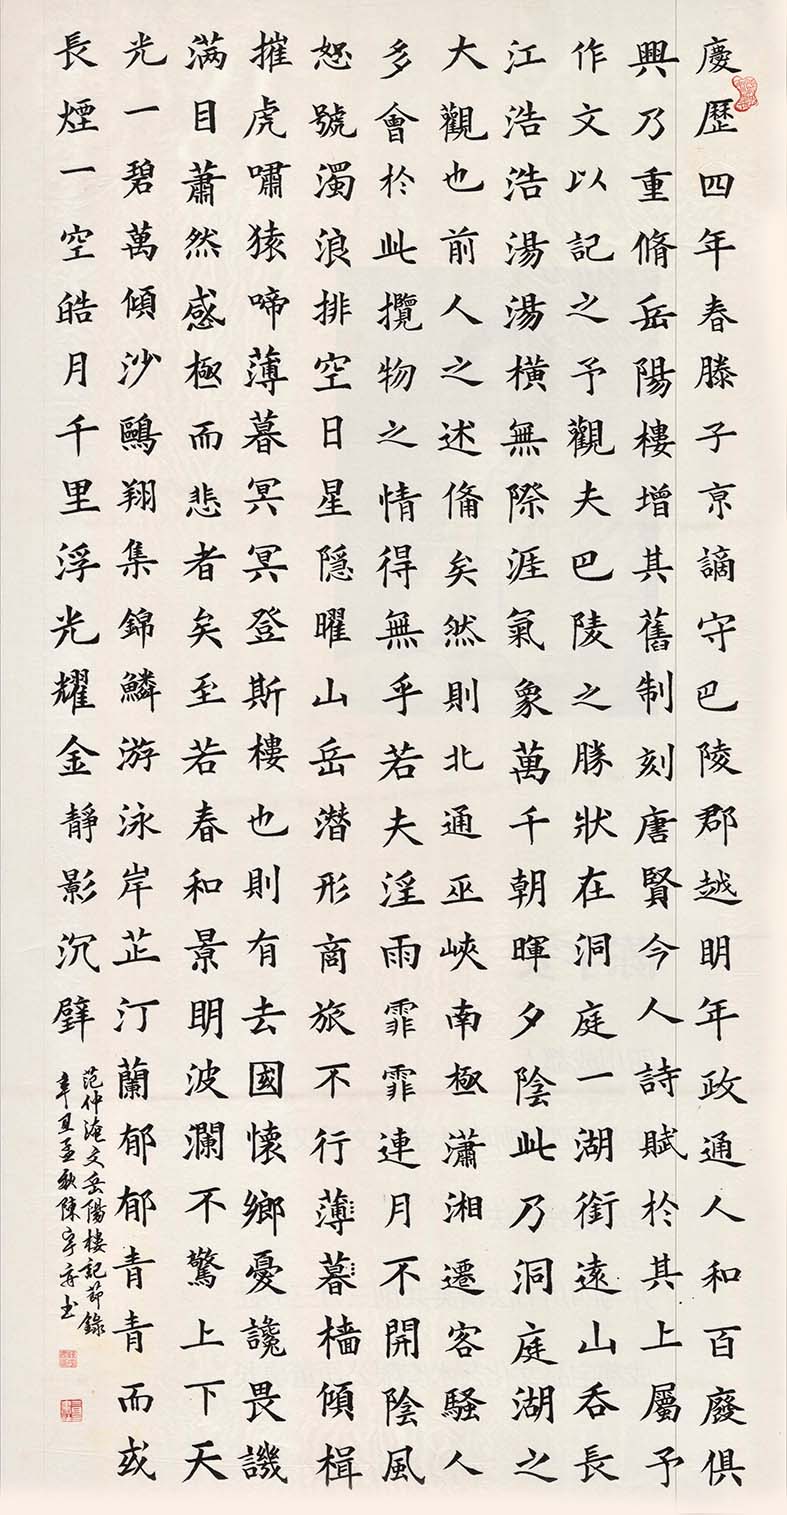 慶歷四年春滕子京謫守巴陵郡越明年政通人和百廢俱
興乃重脩岳陽樓增其舊制刻唐賢今人詩賦於其上屬予
作文以記之予觀夫巴陵之勝狀在洞庭一湖銜遠山吞長
江浩浩湯湯橫無際涯氣象萬千朝暉夕陰此乃洞庭湖之
大觀也前人之述備矣然則北通巫峽南極瀟湘遷客騷人
多會於此攬物之情得無乎若夫淫雨霏霏連月不開陰風
怒號濁浪排空日星隱曜山岳潛形商旅不行薄暮檣傾楫
摧虎嘯猿啼薄暮冥冥登斯樓也則有去國懷鄉憂讒畏譏
滿目蕭然感極而悲者矣至若春和景明波瀾不驚上下天
光一碧萬傾沙鷗翔集錦鱗游泳岸芷汀蘭郁郁青青而或
長煙一空皓月千里浮光耀金靜影沉璧
范仲淹文岳陽樓記節錄
辛丑孟秋陳宇书